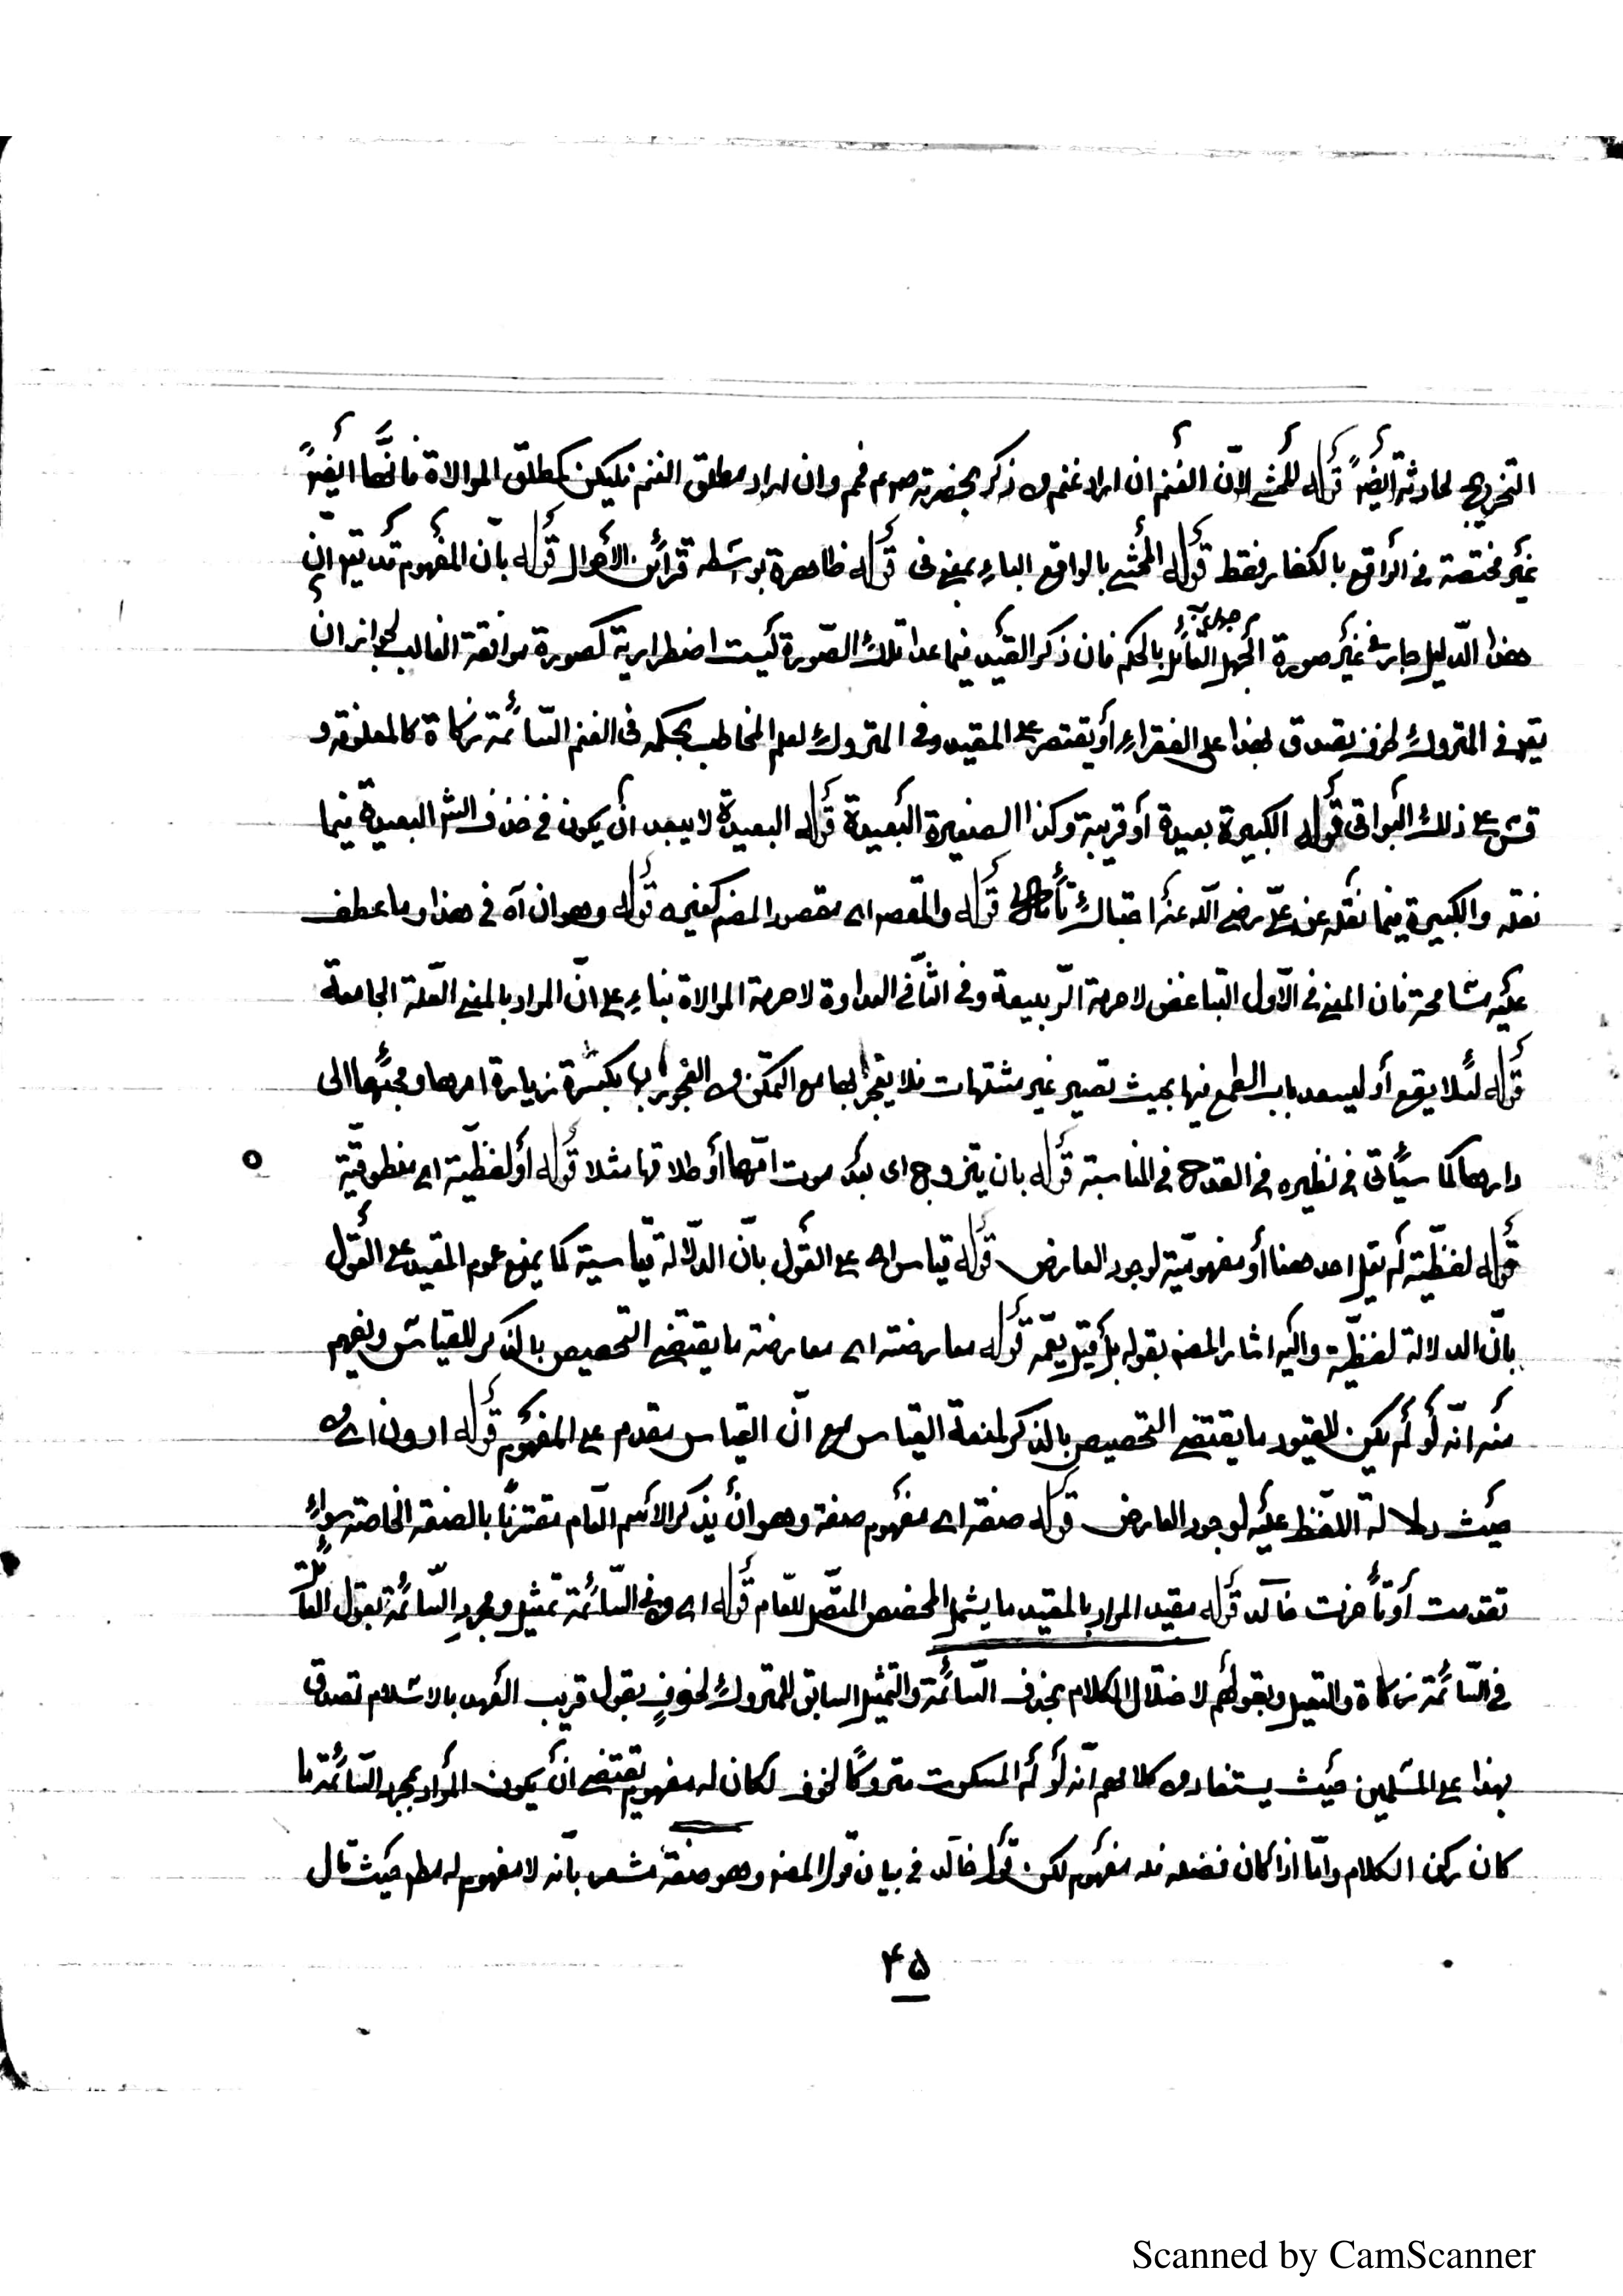 التخريج لحادثة أيضًا قوله للمحشي لأنّ الغنم ان اراد غنم من ذكر بحضرته صوم فهم وان اراد مطلق الغنم فليكن كمطلق الموالاة فانّها ايضًا
غير مختصة في الواقع بالكفار فقط قوله المحشي بالواقع الباء بمعنى في قوله ظاهرة بواسطه قرائن الأحوال قوله بأن المفهوم قد يقوانّ
هذا الدّليل جار في غير صورة الجهل القائل بالحكم فان ذكر القيد فيما عدا تلك الصّورة ليست اضطرارية كصورة موافقة الغالب لجواز ان
يقو في المتروك لخوف تصدق بهذا على الفقراء أو يقتصر على المقيد وفي المتروك لعلم المخاطب بحكمه في الغنم السّائمة زكاة كالمعلوفة و
قس على ذلك البواقي قوله الكبيرة بعيدة أو قريبة وكذا الصغيرة البعيدة قوله البعيدة لا يبعد أن يكون في حذف الشر البعيدة فيما
نقله والكبيرة فيما نقله عن عليّ رضي الله عنه احتباك تأمل قوله والمقصو اى مقصود المصنف كغيره قوله وهو ان آه في هذا وما عطف
عليه مسامحة فان المعنى في الأول التباغض لا حرمة الرّبيبة وفي الثّاني العداوة لا حرمة الموالاة بناء على انّ المراد بالمعنى العّلة الجامعة
قوله لئلا يقع أو ليسعد باب الطمع فيها بحيث تصير غير مشتهات فلا يفجر بها مع التمكن من الفجور بها بكثرة زيارة امرها ومجئها الى
دارها كما سيأتى في نظيره في القدح في المناسبة قوله بان يتزوج اى بعد موت امّها أو طلاقها مثلا قوله أو لفظيّة اى منطوقيّة
قوله لفظيّة لم يقل احد هنا أو مفهوميّة لوجود العارض قوله قياس اى على القول بأن الدلالة قياسية كما يمنع عموم المقيد على القول
بأنّ الدلالة لفظيّة واليه اشار المصنف بقوله بل قيل يعمّه قوله معارضته اى معارضة ما يقتضى التخصيص بالذكر للقياس ويفهم
منه انّه لو لم يكن للقيود ما يقتضى التخصيص بالذكر لمنعة القياس مع انّ القياس مقدم على المفهوم قوله ادون اى من
حيث دلالة اللّفظ عليه لوجود العارض قوله صفة اى مفهوم صفة وهو أن يذكر الاسم العام مقترنًا بالصفة الخاصة سواءٌ
تقدمت أو تأخرت خالد قوله مقيد المراد بالمقيد ما يشمل المخصص المتّصل للعّام قوله اى من السّائمة تمثيل مجرد السّائمة بقول القائل
في السّائمة زكاة والتعيل وبقولهم لاختلال الكلام بحذف السّائمة والتمثيل السابق للمتروك لخوفٍ بقول قريب العهد بالاسلام تصدق
بهذا على المسلمين حيث يستفاد من كلامهم انّه لو لم المسكوت متروكًا لخوف لكان له مفهوم يقتضى أن يكون المراد بمجرد السّائمة ما
كان ركن الكلام وامّا اذا كان فضله فله مفهوم لكن قول خالد في بيان قول المصنف وهو صفة مشعر بانّه لا مفهوم له مطم حيث قال
۴۵
Scanned by CamScanner